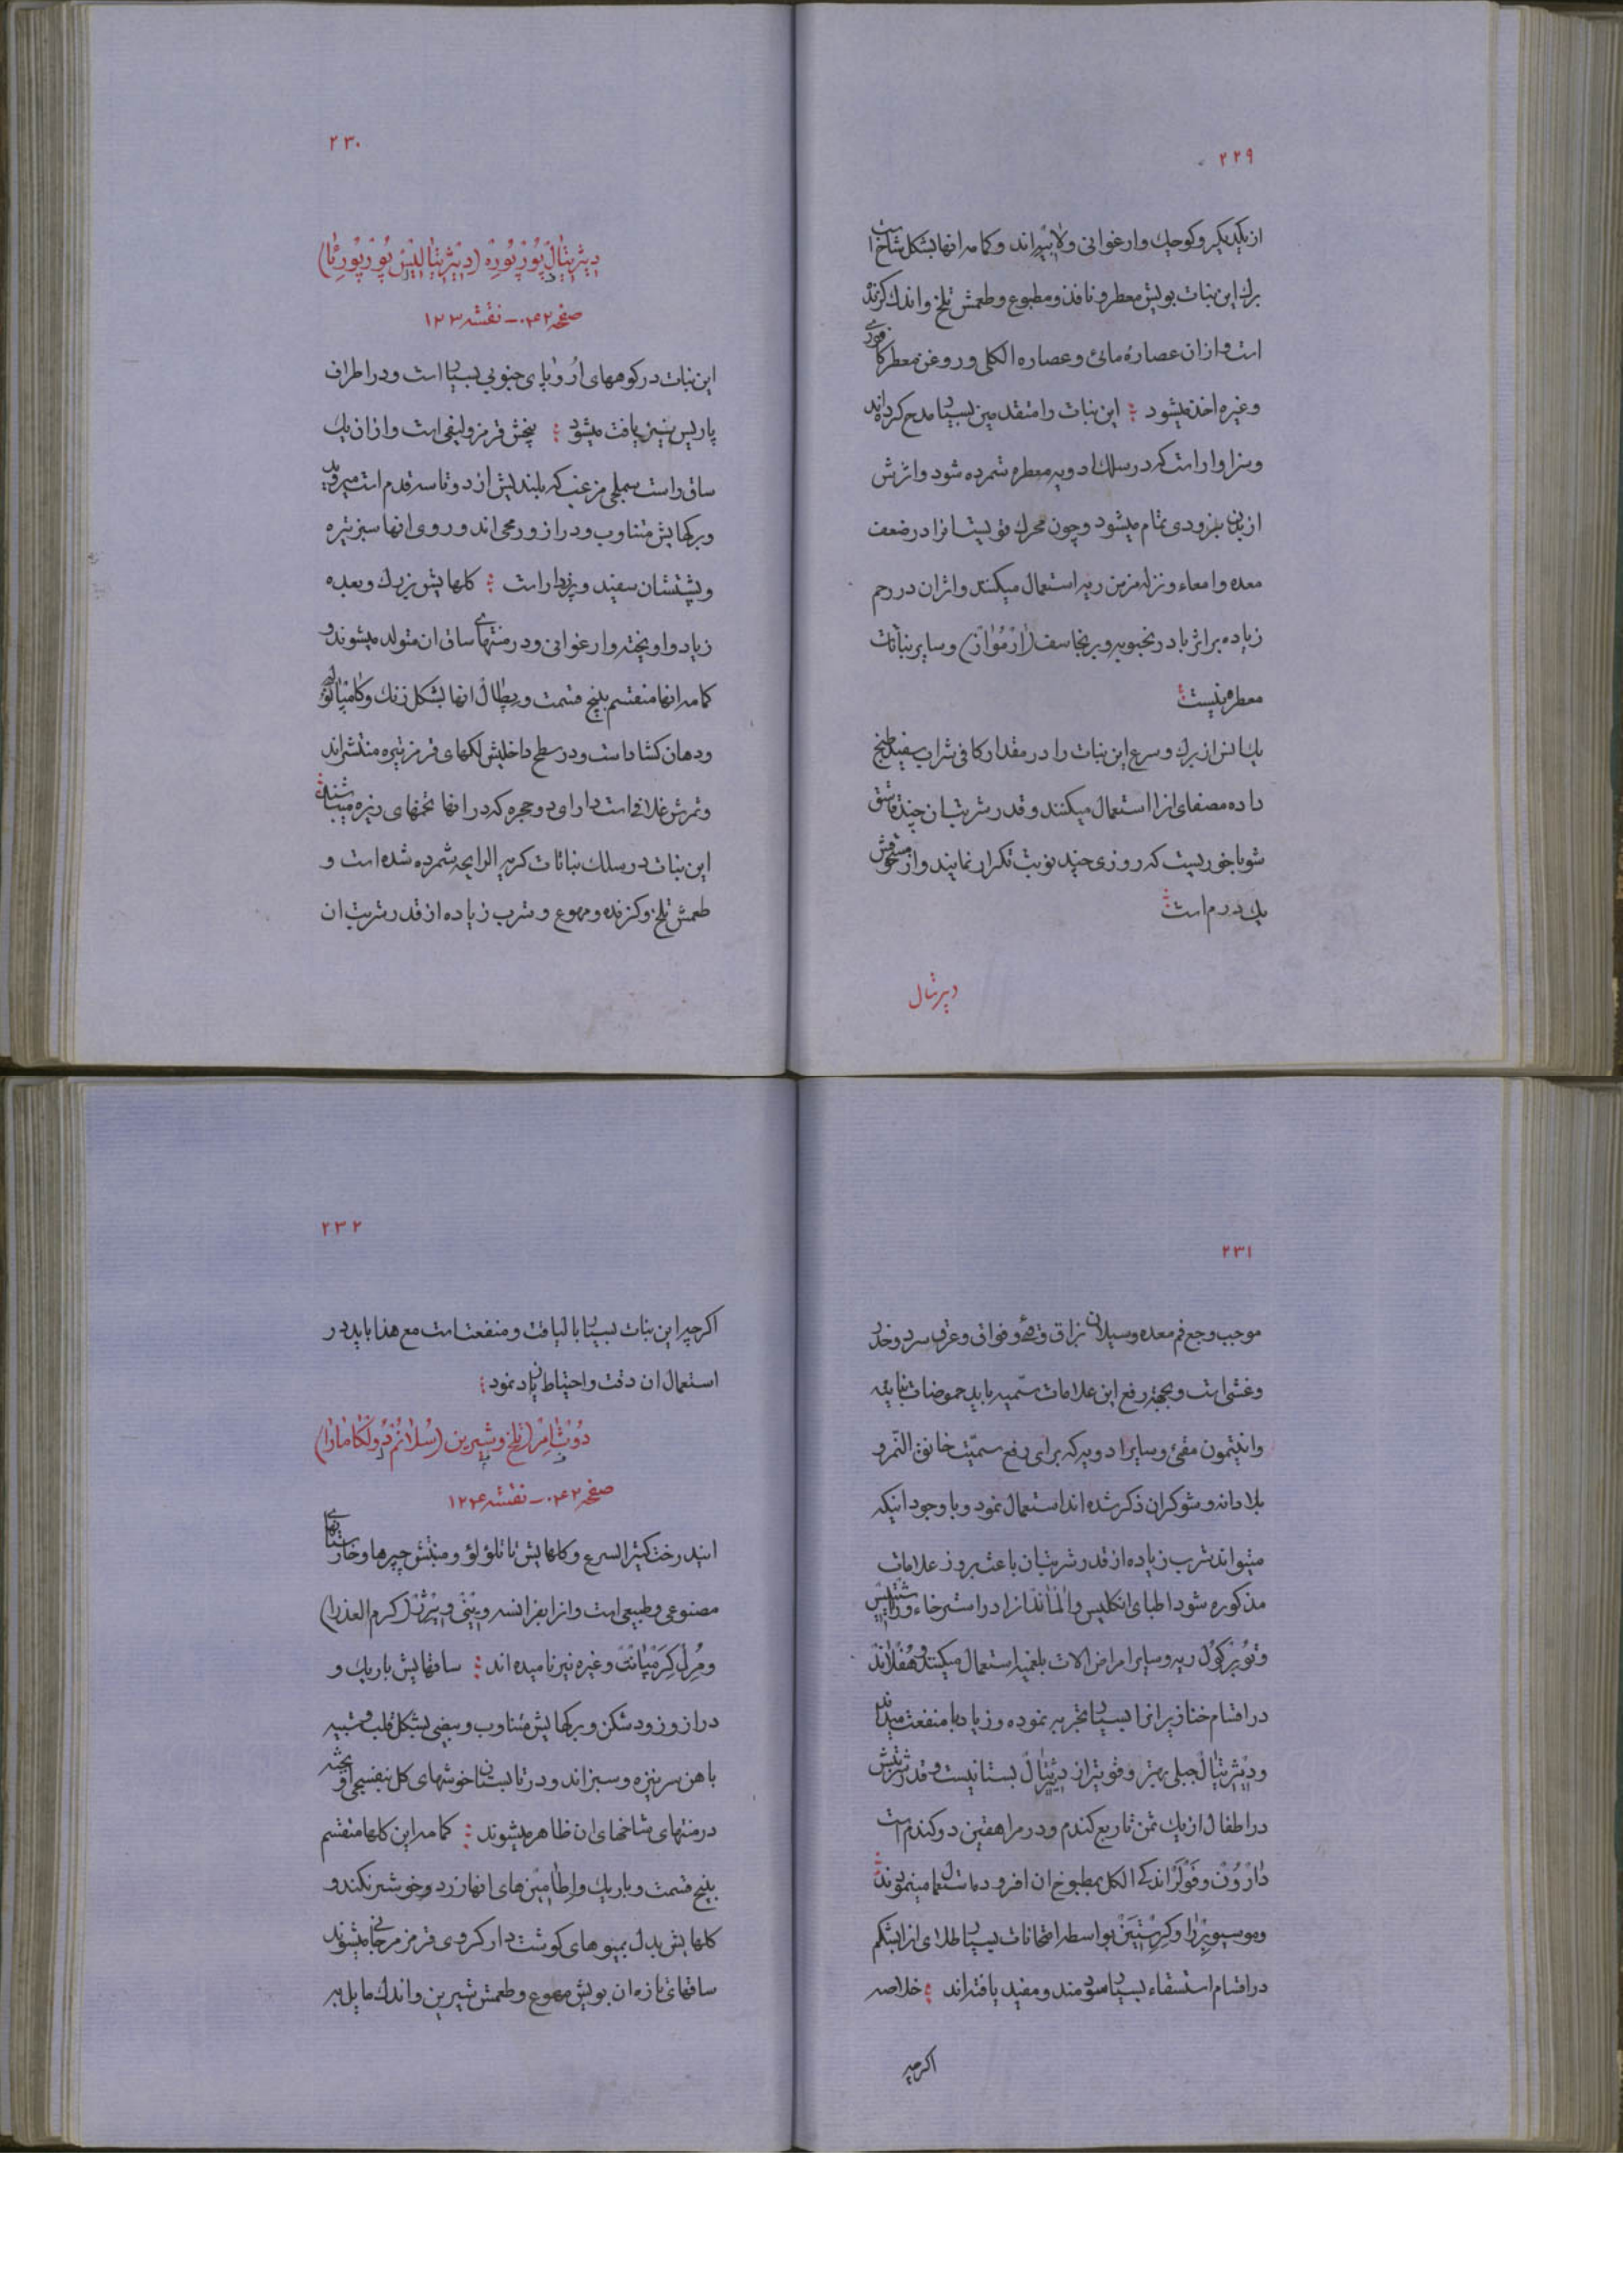 ۲۲۹
از یکدیگر و کوچک و ارغوانی و لابیه‌اند و کمامه انها بشکل شاخ است
برک این نبات بویش معطر و نافذ و مطبوع و طعمش تلخ و اندک کزنده
است و از ان عصاره مائی و عصاره الکلی و روغن معطر کافوری
و غیره اخذ میشود این نبات را متقدمین بسیار مدح کرده‌اند
و سزاوار است که در سلک ادویه معطره شمرده شود و اثرش
از بدن بزودی تمام میشود و چون محرک قویست انرا در ضعف
معده و امعاء و نزله مزمن ریه استعمال میکنند و اثر ان در رحم
زیاده بر اثر بادرنجبویه و برنجاسف (ارْمُوازْ) و سایر نباتات
معطره نیست
یک انس از برک و سرع این نبات را در مقدار کافی شراب سفید طبخ
داده مصفای انرا استعمال میکنند و قدر شربت ان چند قاشق
شورباخوریست که روزی چند نوبت تکرار نمایند و از سفوفش
یک درم است
دیژیتال
۲۳۰
دیژیتالْ پُورْپُورِهْ (دیژیتالیسْ پُورْپُورِئا)
صفحه ۰۴۲ – نقشه ۱۲۳
این نبات در کوههای اروپای جنوبی بسیار است و در اطراف
پاریس نیز یافت میشود بیخش قرمز و لیفی است و از ان یک
ساق راست مملی مزغب که بلندیش از دو تا سه قدم است میروید
و برکهایش متناوب و دراز و رمحی‌اند و روی انها سبز تیره
و پشتشان سفید و پرزدار است کلهایش بزرک و بعده
زیاد و اویخته و ارغوانی و در منتهای ساق ان متولد میشوند و
کمامه انها منقسم بپنج قسمت و پطال انها بشکل زنک و
و دهان کشاد است و در سطح داخلیش لکهای قرمز تیره منتشراند
و ثمرش غلافی است دارای دو حجره که در انها تخمهای ریزه میباشند
این نبات در سلک نباتات کریه الرایحه شمرده شده است و
طعمش تلخ و کزنده و مهوع و شرب زیاده از قدر شربت ان
۲۳۱
موجب وجع فم معده و سیلان بزاق و قی و فواق و عرق سرد و خدر
و غشی است و بجهة رفع این علامات سمیه باید حموضات نباتیه
و انتیمون مقئ و سایر ادویه که برای رفع سمیّت خانق النّمر و
بلادانه و شوکران ذکر شده‌اند استعمال نمود و با وجود اینکه
میتواند شرب زیاده از قدر شربت ان باعث بروز علامات
مذکوره شود اطبای انکلیس و المان انرا در استرخاء و
و تُوبِرْکُولْ ریه و سایر امراض الات بلغمیه استعمال میکنند و هُفْلَانْدْ
در اقسام خنازیر انرا بسیار تجربه نموده و زیاد با منفعت میداند
و دیژیتالْ جبلی بهتر و قویتر از دیژیتالْ بستانیست و قدر شربتش
در اطفال از یک ثمن تا ربع کندم و در مراهقین دو کندم است
دارْوُنْ و اندکی الکل بمطبوخ ان افزوده استعمال مینمودند
و موسیو و کرسْتیَنْ بواسطه امتحانات بسیار طلای انرا بشکم
در اقسام استسقاء بسیار سودمند و مفید یافته‌اند خلاصه
اکرچه
۲۳۲
اکرچه این نبات بسیار با لیاقت و منفعت است مع هذا باید در
استعمال ان دقت و احتیاط زیاد نمود
دُوسْ‌امِرْ تلخ و شیرین (سُلَانُمْ دُولْکَامَارَا)
صفحه ۰۴۲ – نقشه ۱۲۴
ایندرخت کثیر السرع و کلهایش با تلؤلؤ و منبتش چپرها و خارستانهای
مصنوعی و طبیعی است و انرا بفرانسه وینی ویِرْژْ (کرم العذرا)
و مُرِلْ کِرَمْپانْتْ و غیره نیز نامیده‌اند ساقهایش باریک و
دراز و زود شکن و برکهایش متناوب و بیضی بشکل قلب و شبیه
باهن سر نیزه و سبزاند و در تابستان خوشهای کل بنفسجی اویخته
در منتهای شاخهای ان ظاهر میشوند کمامه این کلها منقسم
بپنج قسمت و باریک و اطامین‌های انها زرد و خوشرنکند و
کلهایش بدل بمیوهای کوشت دار کروی قرمز مرجانی میشوند
ساقهای تازه ان بویش مهوع و طعمش شیرین و اندک مایل به